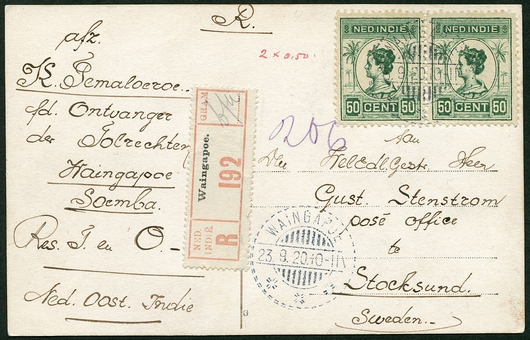 R.
afz.
K. Pemaloeroe..
fd. Ontvanger
der Tolrechten
Waingapoe
Soemba.
Res. T. en O-
Ned. Oost. Indie
2 x 0,50.
NED. INDIE
50 CENT 50
NED. INDIE
50 CENT 50
206
GRAM
Waingapoe.
192
R
NED.
INDIË
WAINGAPOE
23.9.20.10-11V
Aan
Den WelEdl.Gest. Heer
Gust. Stenstrom
posé office
te
Stocksund.
Sweden.-